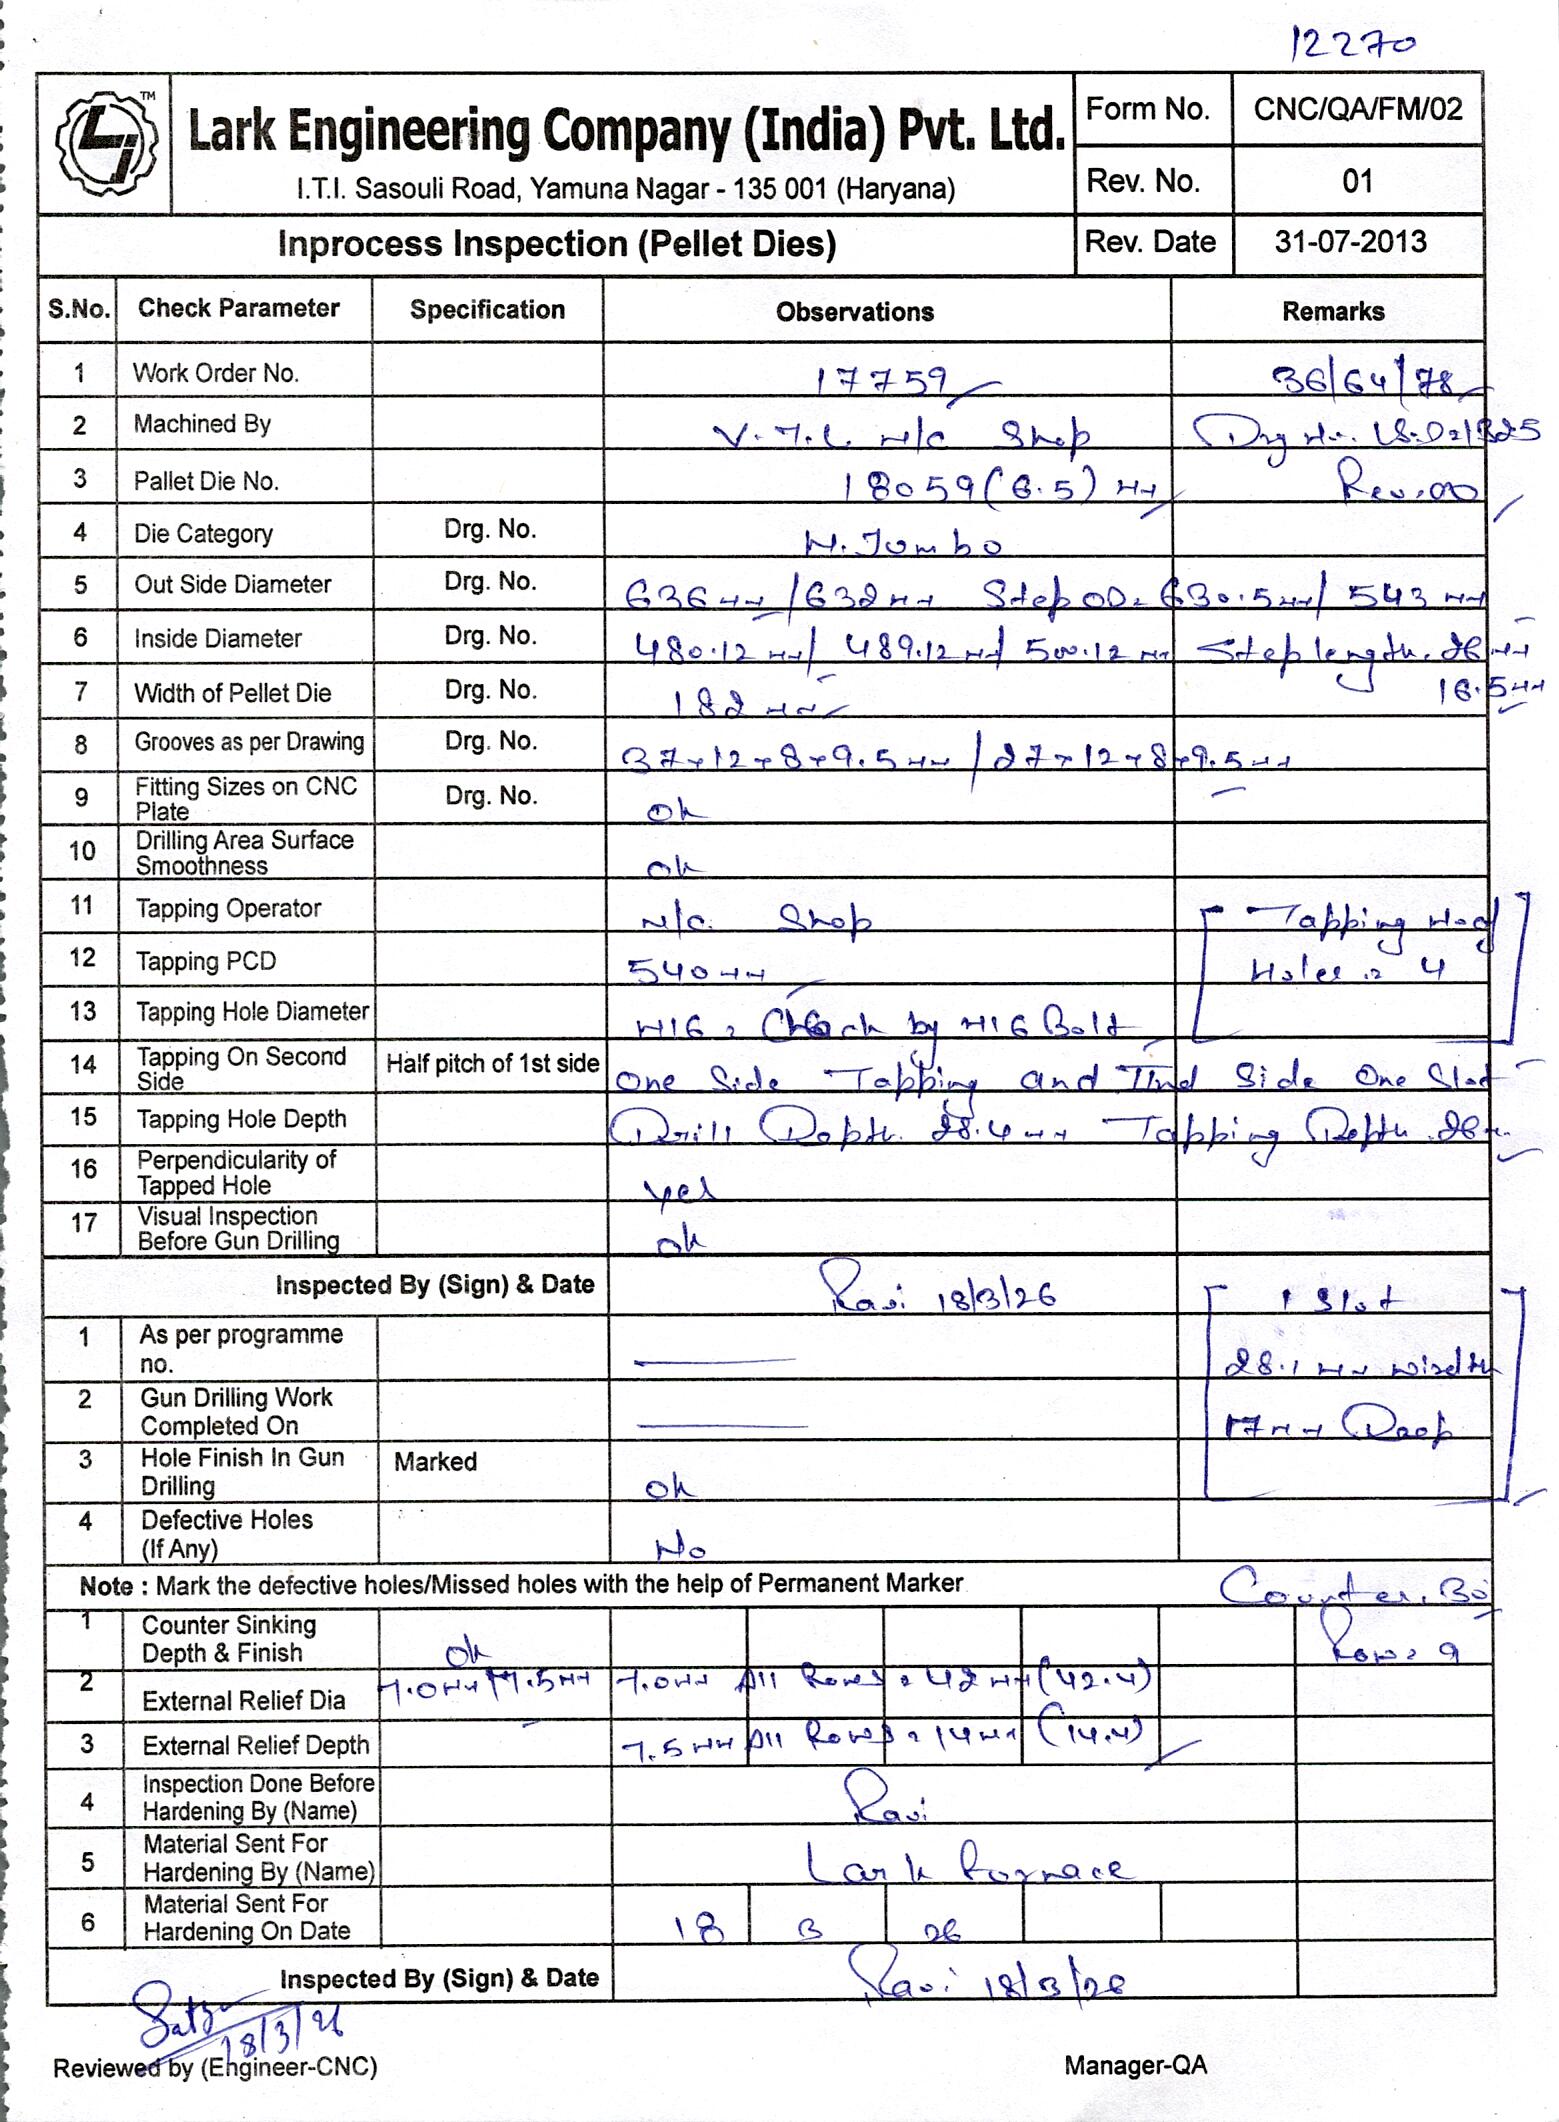 12270
TM
Lark Engineering Company (India) Pvt. Ltd.
I.T.I. Sasouli Road, Yamuna Nagar - 135 001 (Haryana)
Form No. CNC/QA/FM/02
Rev. No. 01
Inprocess Inspection (Pellet Dies)
Rev. Date 31-07-2013
S.No. Check Parameter Specification Observations Remarks
1 Work Order No. 17759 36/64/78
2 Machined By V.T.L. M/c Shop Drg No.
3 Pallet Die No. 18059 (6.5) MM Rev.00
4 Die Category Drg. No. M. Jumbo
5 Out Side Diameter Drg. No. 636 MM / 632 MM Step OD = 630.5 MM / 543 MM
6 Inside Diameter Drg. No. 480.12 MM / 489.12 MM / 500.12 MM Step length = 26 MM
16.5 MM
7 Width of Pellet Die Drg. No. 182 MM
8 Grooves as per Drawing Drg. No. 37 x 12 x 8 x 9.5 MM / 27 x 12 x 8 x 9.5 MM
9 Fitting Sizes on CNC Plate Drg. No. ok
10 Drilling Area Surface Smoothness ok
11 Tapping Operator M/c Shop Tapping No of
12 Tapping PCD 540 MM Holes = 4
13 Tapping Hole Diameter M16 = Check by M16 Bolt
14 Tapping On Second Side Half pitch of 1st side One Side Tapping and IInd Side One Slot
15 Tapping Hole Depth Drill Depth = 28.4 MM Tapping Depth = 26
16 Perpendicularity of Tapped Hole yes
17 Visual Inspection Before Gun Drilling ok
Inspected By (Sign) & Date Ravi 18/3/26
1 Slot
1 As per programme no.
28.1 MM Width
2 Gun Drilling Work Completed On
17 MM Deep
3 Hole Finish In Gun Drilling Marked ok
4 Defective Holes (If Any) No
Note : Mark the defective holes/Missed holes with the help of Permanent Marker
Counter
1 Counter Sinking Depth & Finish ok Rows = 9
2 External Relief Dia 7.0 MM / 7.5 MM 7.0 MM All Rows = 42 MM (42.4)
3 External Relief Depth 7.5 MM All Rows = 14 MM (14.4)
4 Inspection Done Before Hardening By (Name) Ravi
5 Material Sent For Hardening By (Name) Lark Fornace
6 Material Sent For Hardening On Date 18 3 26
Inspected By (Sign) & Date Ravi 18/3/26
18/3/26
Reviewed by (Engineer-CNC) Manager-QA